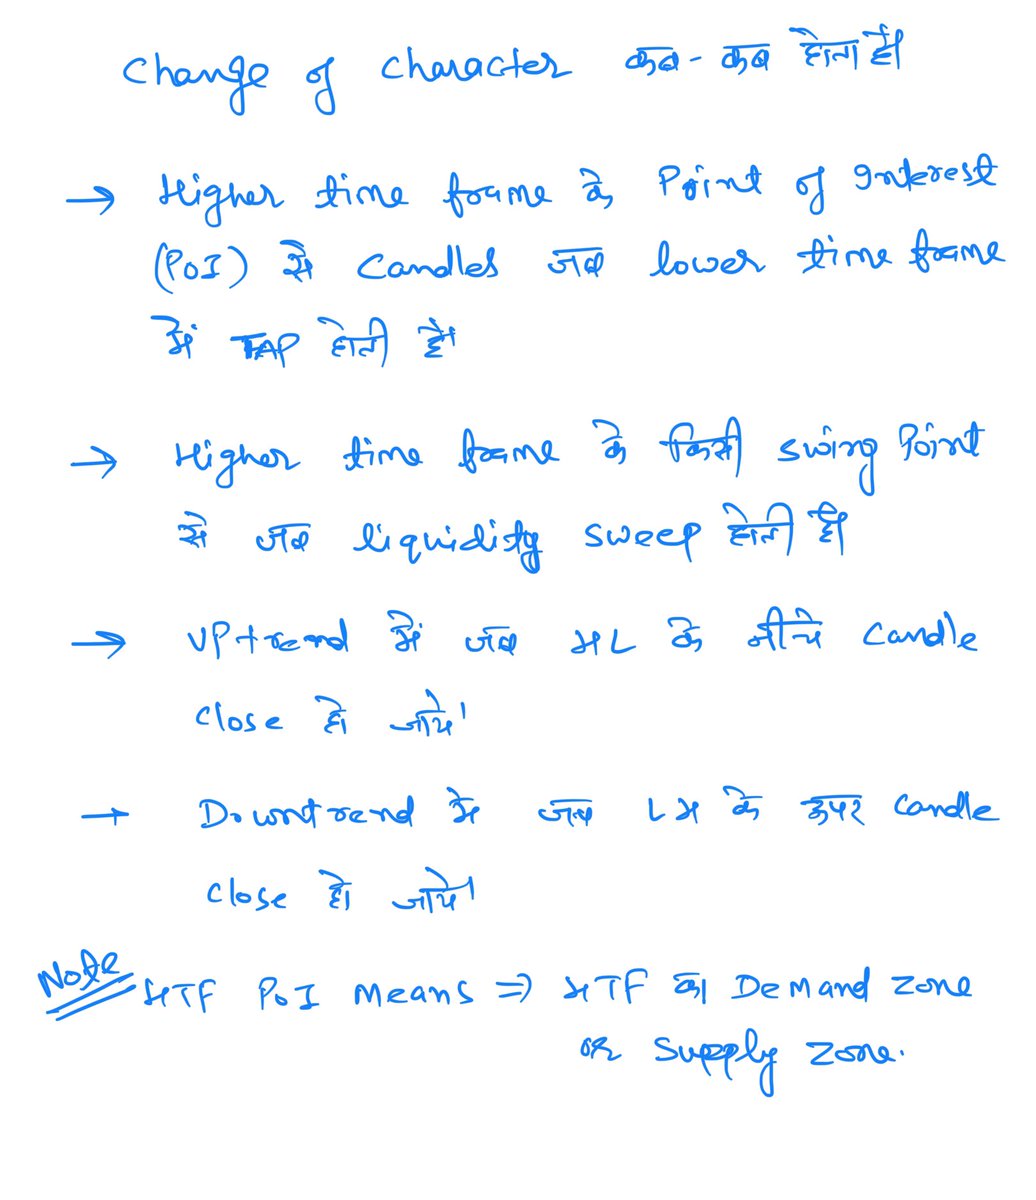 Change of character कब-कब होता है।
→ Higher time frame के Point of Interest
(POI) से Candles जब lower time frame
में TAP होती है।
→ Higher time frame के किसी swing Point
से जब liquidity sweep होती है।
→ UPtrend में जब HL के नीचे Candle
Close हो जाये।
→ Downtrend में जब LH के ऊपर Candle
Close हो जाये।
Note HTF POI Means ⇒ HTF का Demand Zone
or Supply Zone.